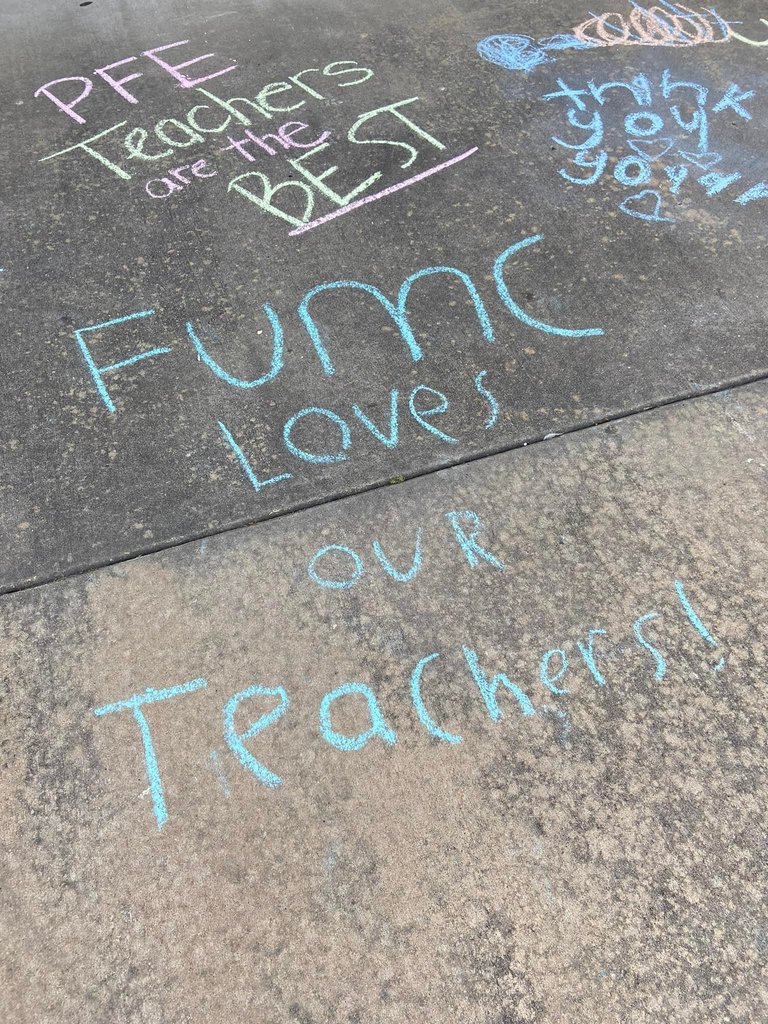 PFE
Teachers
are the
BEST
think
you
FUMC
Loves
OUR
Teachers!